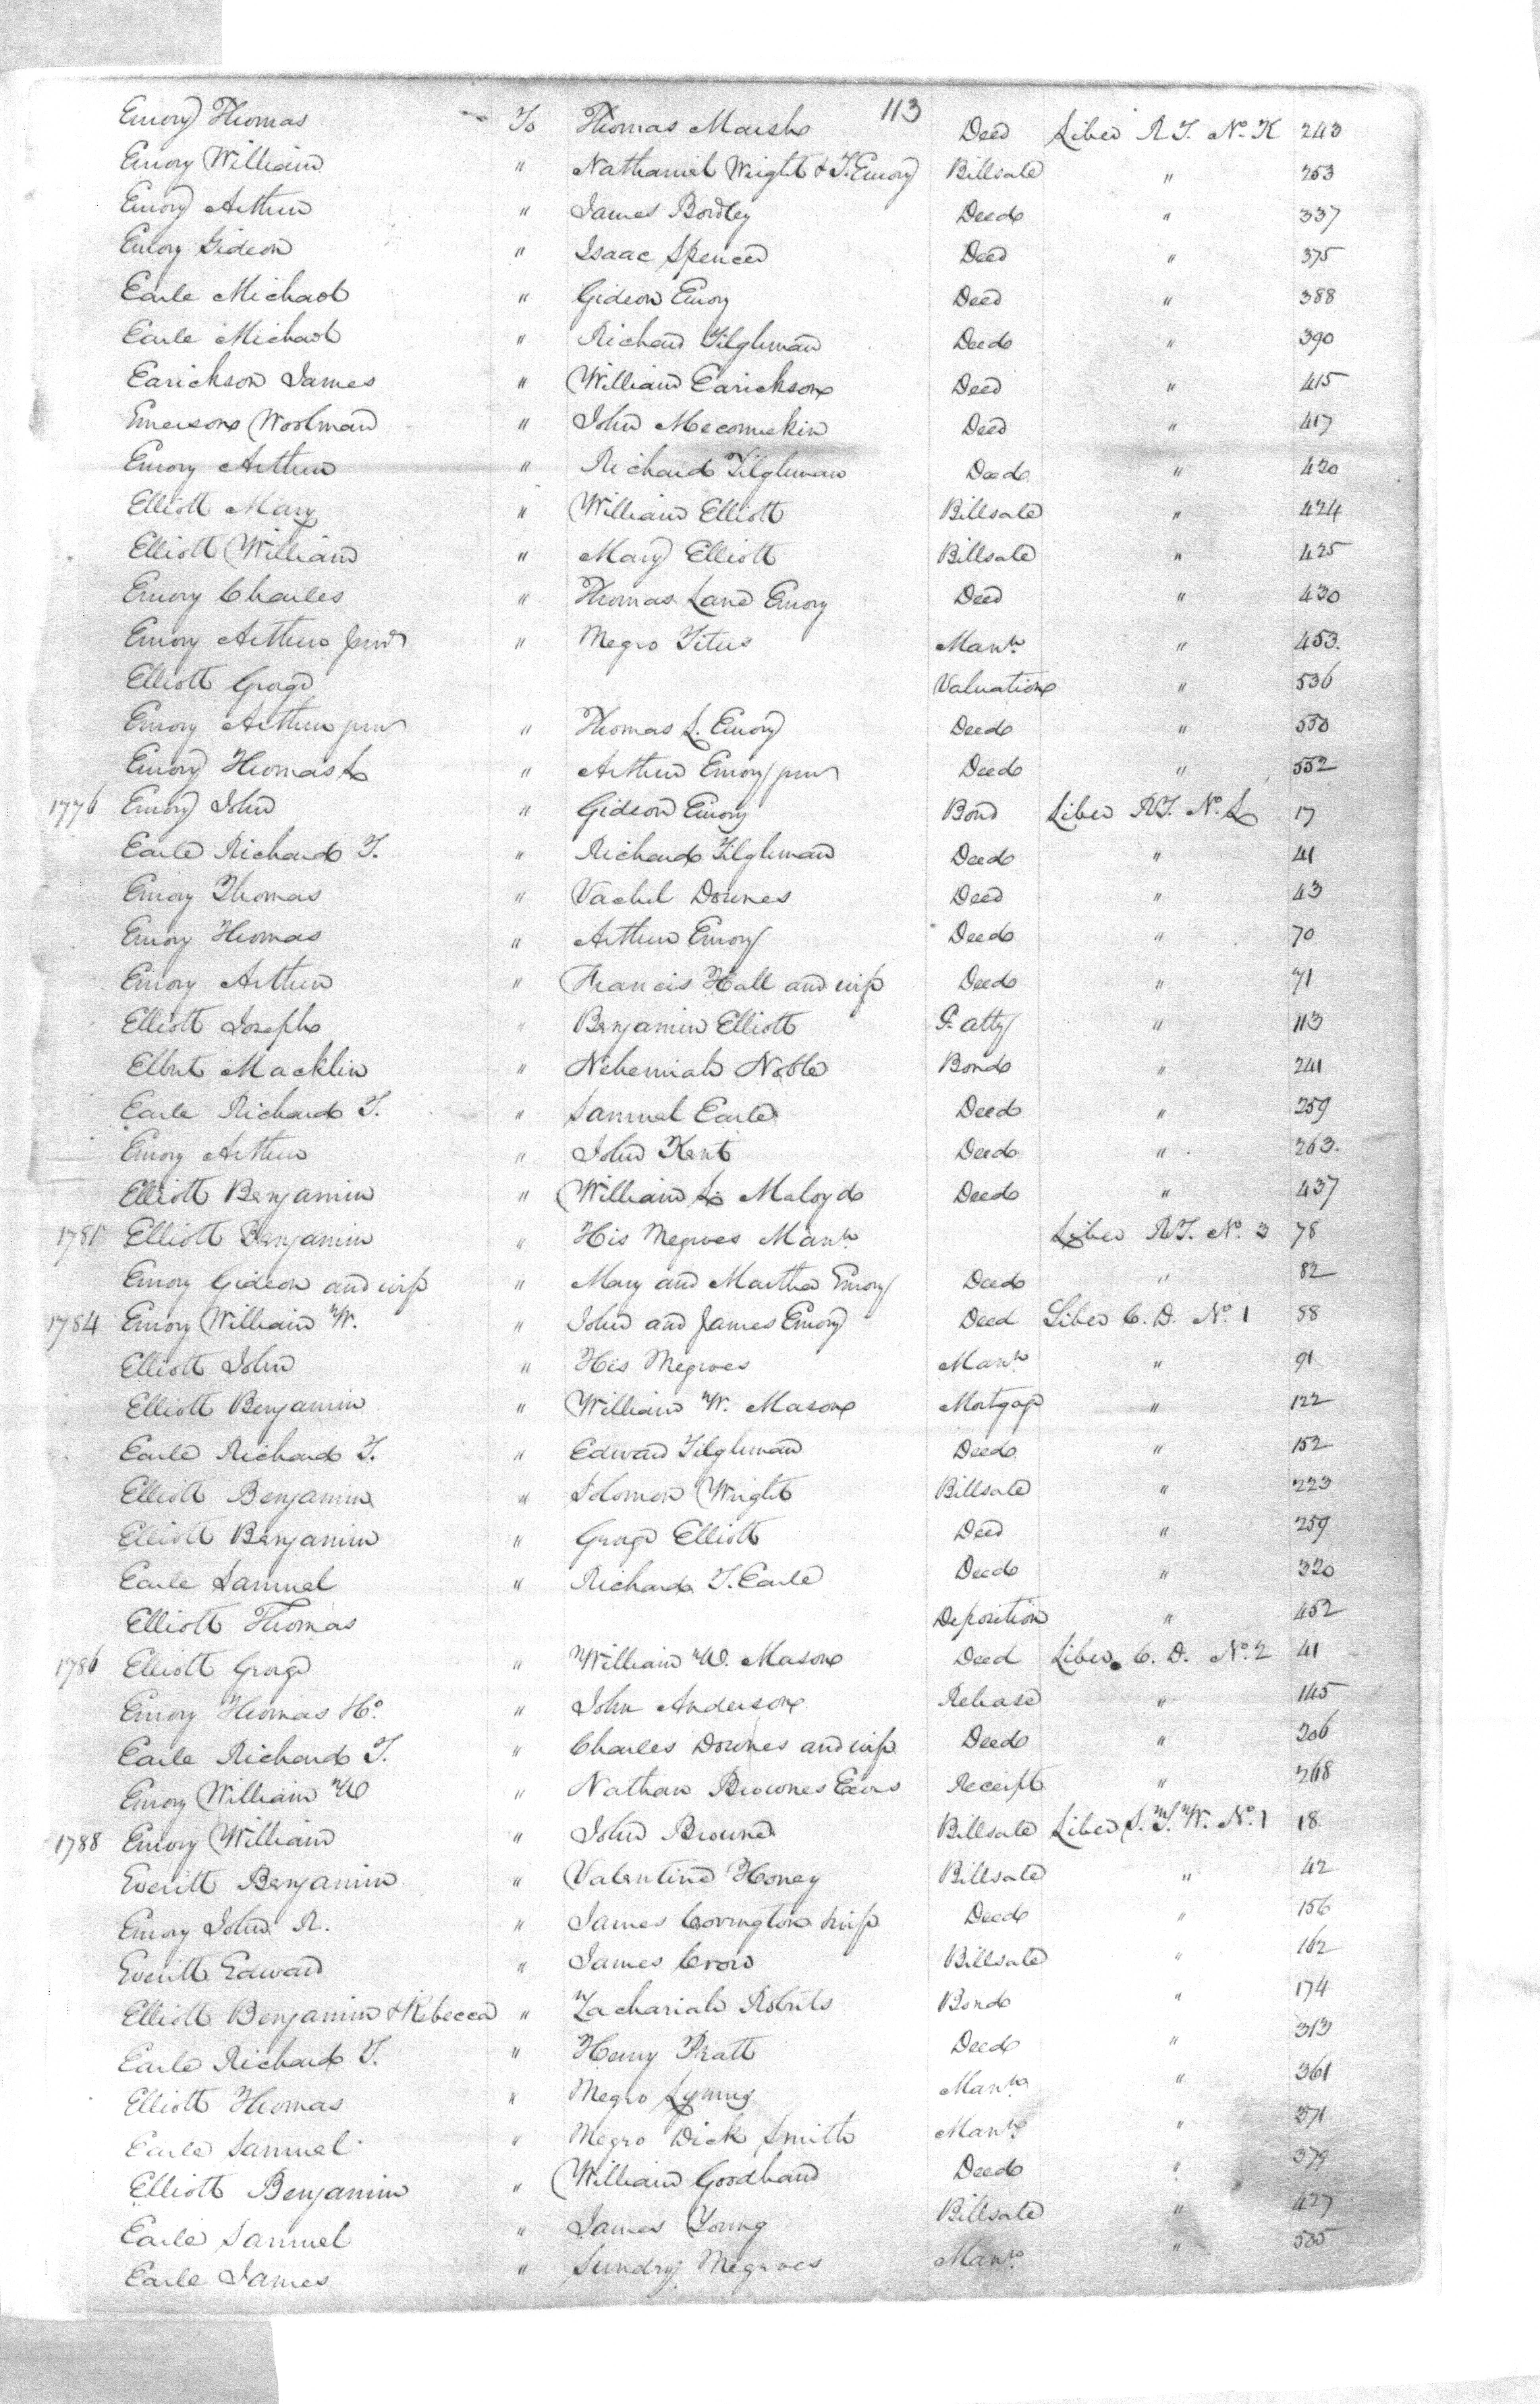 113
Emory Thomas To Thomas Marsh Deed Liber R.T. No. K 243
Emory William " Nathaniel Wright & T. Emory Billsale " 253
Emory Arthur " James Bordley Deed " 337
Emory Gideon " Isaac Spencer Deed " 375
Earle Michael " Gideon Emory Deed " 388
Earle Michael " Richard Tilghman Deed " 390
Earickson James " William Earickson Deed " 415
Emerson Woolman " John Mecomekin Deed " 417
Emory Arthur " Richard Tilghman Deed " 420
Elliott Mary " William Elliott Billsale " 424
Elliott William " Mary Elliott Billsale " 425
Emory Charles " Thomas Lane Emory Deed " 430
Emory Arthur junr " Negro Titus Mann. " 453.
Elliott George Valuation " 536
Emory Arthur junr " Thomas L. Emory Deed " 550
Emory Thomas L " Arthur Emory junr Deed " 552
1776 Emory John " Gideon Emory Bond Liber R.T. No. L 17
Earle Richard T. " Richard Tilghman Deed " 41
Emory Thomas " Vachel Downes Deed " 43
Emory Thomas " Arthur Emory Deed " 70
Emory Arthur " Francis Hall and wife Deed " 71
Elliott Joseph " Benjamin Elliott P. atty " 113
Elbert Macklin " Nehemiah Noble Bond " 241
Earle Richard T. " Samuel Earle Deed " 259
Emory Arthur " John Kent Deed " 263.
Elliott Benjamin " William L. Maloyd Deed " 437
1781 Elliott Benjamin " His Negroes Mann. Liber R.T. No. 3 78
Emory Gideon and wife " Mary and Martha Emory Deed " 82
1784 Emory William W. " John and James Emory Deed Liber C. D. No. 1 88
Elliott John " His Negroes Mann. " 91
Elliott Benjamin " William W. Mason Mortgage " 122
Earle Richard T. " Edward Tilghman Deed " 152
Elliott Benjamin " Solomon Wright Billsale " 223
Elliott Benjamin " George Elliott Deed " 259
Earle Samuel " Richard T. Earle Deed " 320
Elliott Thomas Deposition " 452
1786 Elliott George " William W. Mason Deed Liber C. D. No. 2 41
Emory Thomas Ho. " John Anderson Release " 145
Earle Richard T. " Charles Downes and wife Deed " 206
Emory William W " Nathan Brownes Exors Receipt " 268
1788 Emory William " John Browne Billsale Liber S.T.W. No. 1 18
Everitt Benjamin " Valentine Honey Billsale " 42
Emory John R. " James Covington & wife Deed " 156
Everitt Edward " James Crow Billsale " 162
Elliott Benjamin & Rebecca " Zachariah Roberts Bond " 174
Earle Richard T. " Henry Pratt Deed " 313
Elliott Thomas " Negro Mann. " 361
Earle Samuel " Negro Dick Smith Mann. " 371
Elliott Benjamin " William Goodhand Deed " 379
Earle Samuel " James Young Billsale " 427
Earle James " Sundry Negroes Mann. " 585